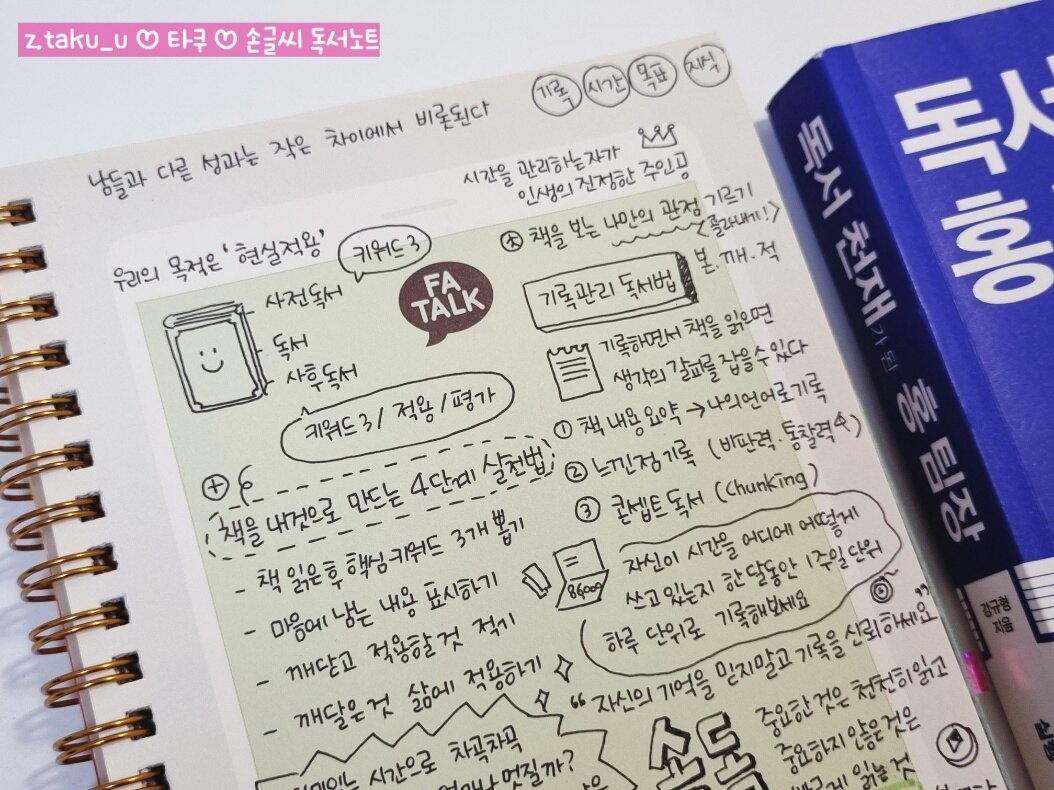 z.taku_u ♡ 타쿠 ♡ 손글씨 독서노트
기록 시간 목표 지식
남들과 다른 성과는 작은 차이에서 비롯된다
시간을 관리하는자가
인생의 진정한 주인공
우리의 목적은 '현실적용'
키워드3
사전독서
독서
사후독서
FA
TALK
키워드3 / 적용 / 평가
책을 내것으로 만드는 4단계 실천법
- 책 읽은후 핵심키워드 3개 뽑기
- 마음에 남는 내용 표시하기
- 깨닫고 적용할것 적기
- 깨달은것 삶에 적용하기
시간으로 차곡차곡
멋질까?
책을 보는 나만의 관점 기르기
골라내기!>
기록관리 독서법
본.깨.적
기록하면서 책을 읽으면
생각의 갈피를 잡을수있다
① 책 내용요약 → 나의언어로기록
② 느낀점기록 (비판력.통찰력
③ 콘셉트독서 (chunking)
86000
자신이 시간을 어디에 어떻게
쓰고있는지 한달동안 1주일단위
하루 단위로 기록해보세요
"자신의 기억을 믿지말고 기록을 신뢰하세요"
속독
중요한것은 천천히읽고
중요하지 않은것은
빠르게 읽는것
독서 천재가 된 홍 팀장
강규형
지음
독서
홍